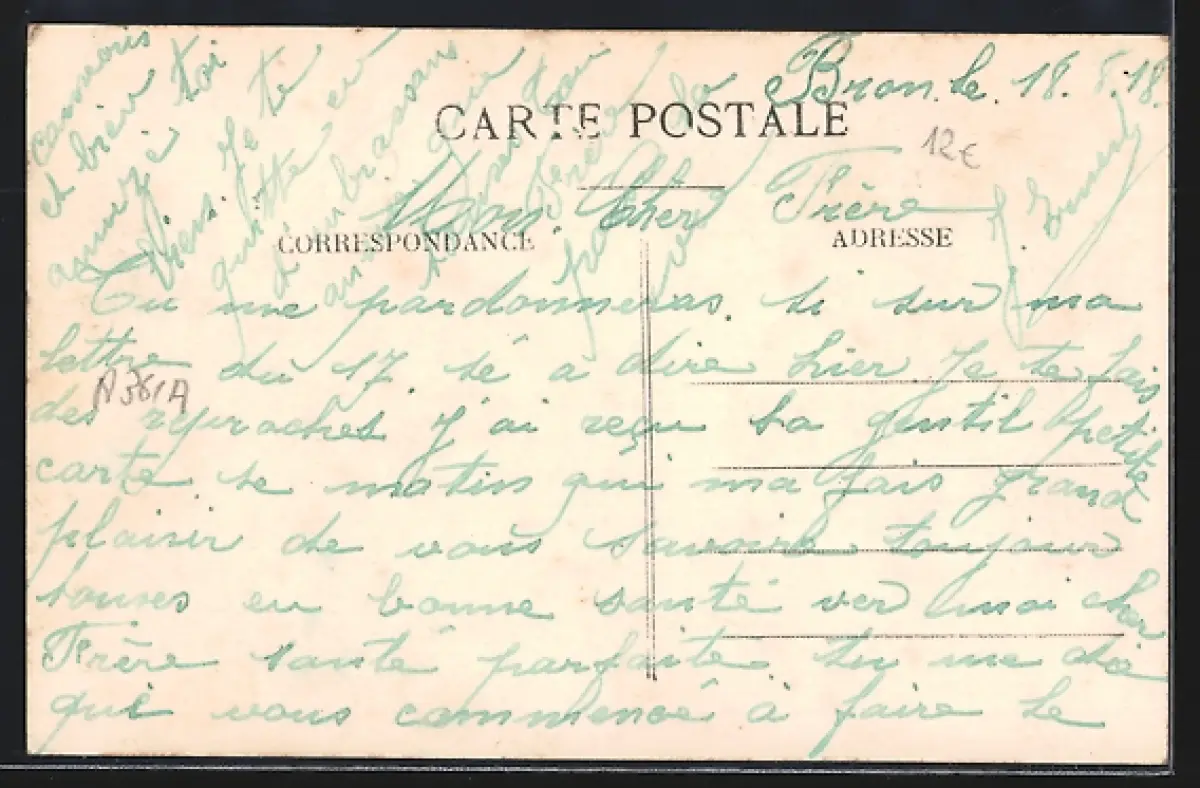 Bron. le. 18. 8. 18.
CARTE POSTALE
12€
Mon. Cher Frère
CORRESPONDANCE
ADRESSE
Tu me pardonneras. si sur ma
lettre du 17. sé a dire hier. Je te fais
N381A
des reproches J'ai reçu ta gentil petite
carte se matin qui ma fais grand
plaisir de vous savoire toujour
toutes en bonne santé ver moi cher
Frère santé parfaite. tu me die
qui vous commencé à faire le
camions
et bien toi
amuzé
viens. Je te
quitte en